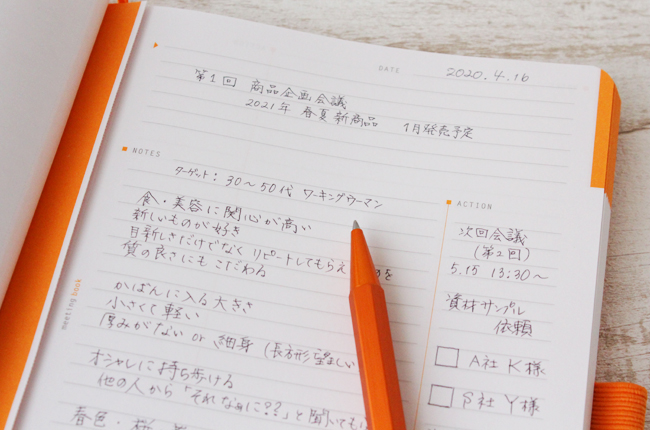 DATE 2020.4.16
第1回 商品企画会議
2021年 春夏新商品 1月発売予定
NOTES
ターゲット: 30〜50代 ワーキングウーマン
食・美容に関心が高い
新しいものが好き
目新しさだけでなく リピートしてもらえ のを
質の良さにも こだわる
かばんに入る大きさ
小さくて軽い
厚みがない or 細身 (長方形望ましい
オシャレに持ち歩ける
他の人から「それなぁに??」と聞いても
春色・桜
ACTION
次回会議
(第2回)
5.15 13:30〜
資材サンプル
依頼
A社 K様
S社 Y様
meeting book